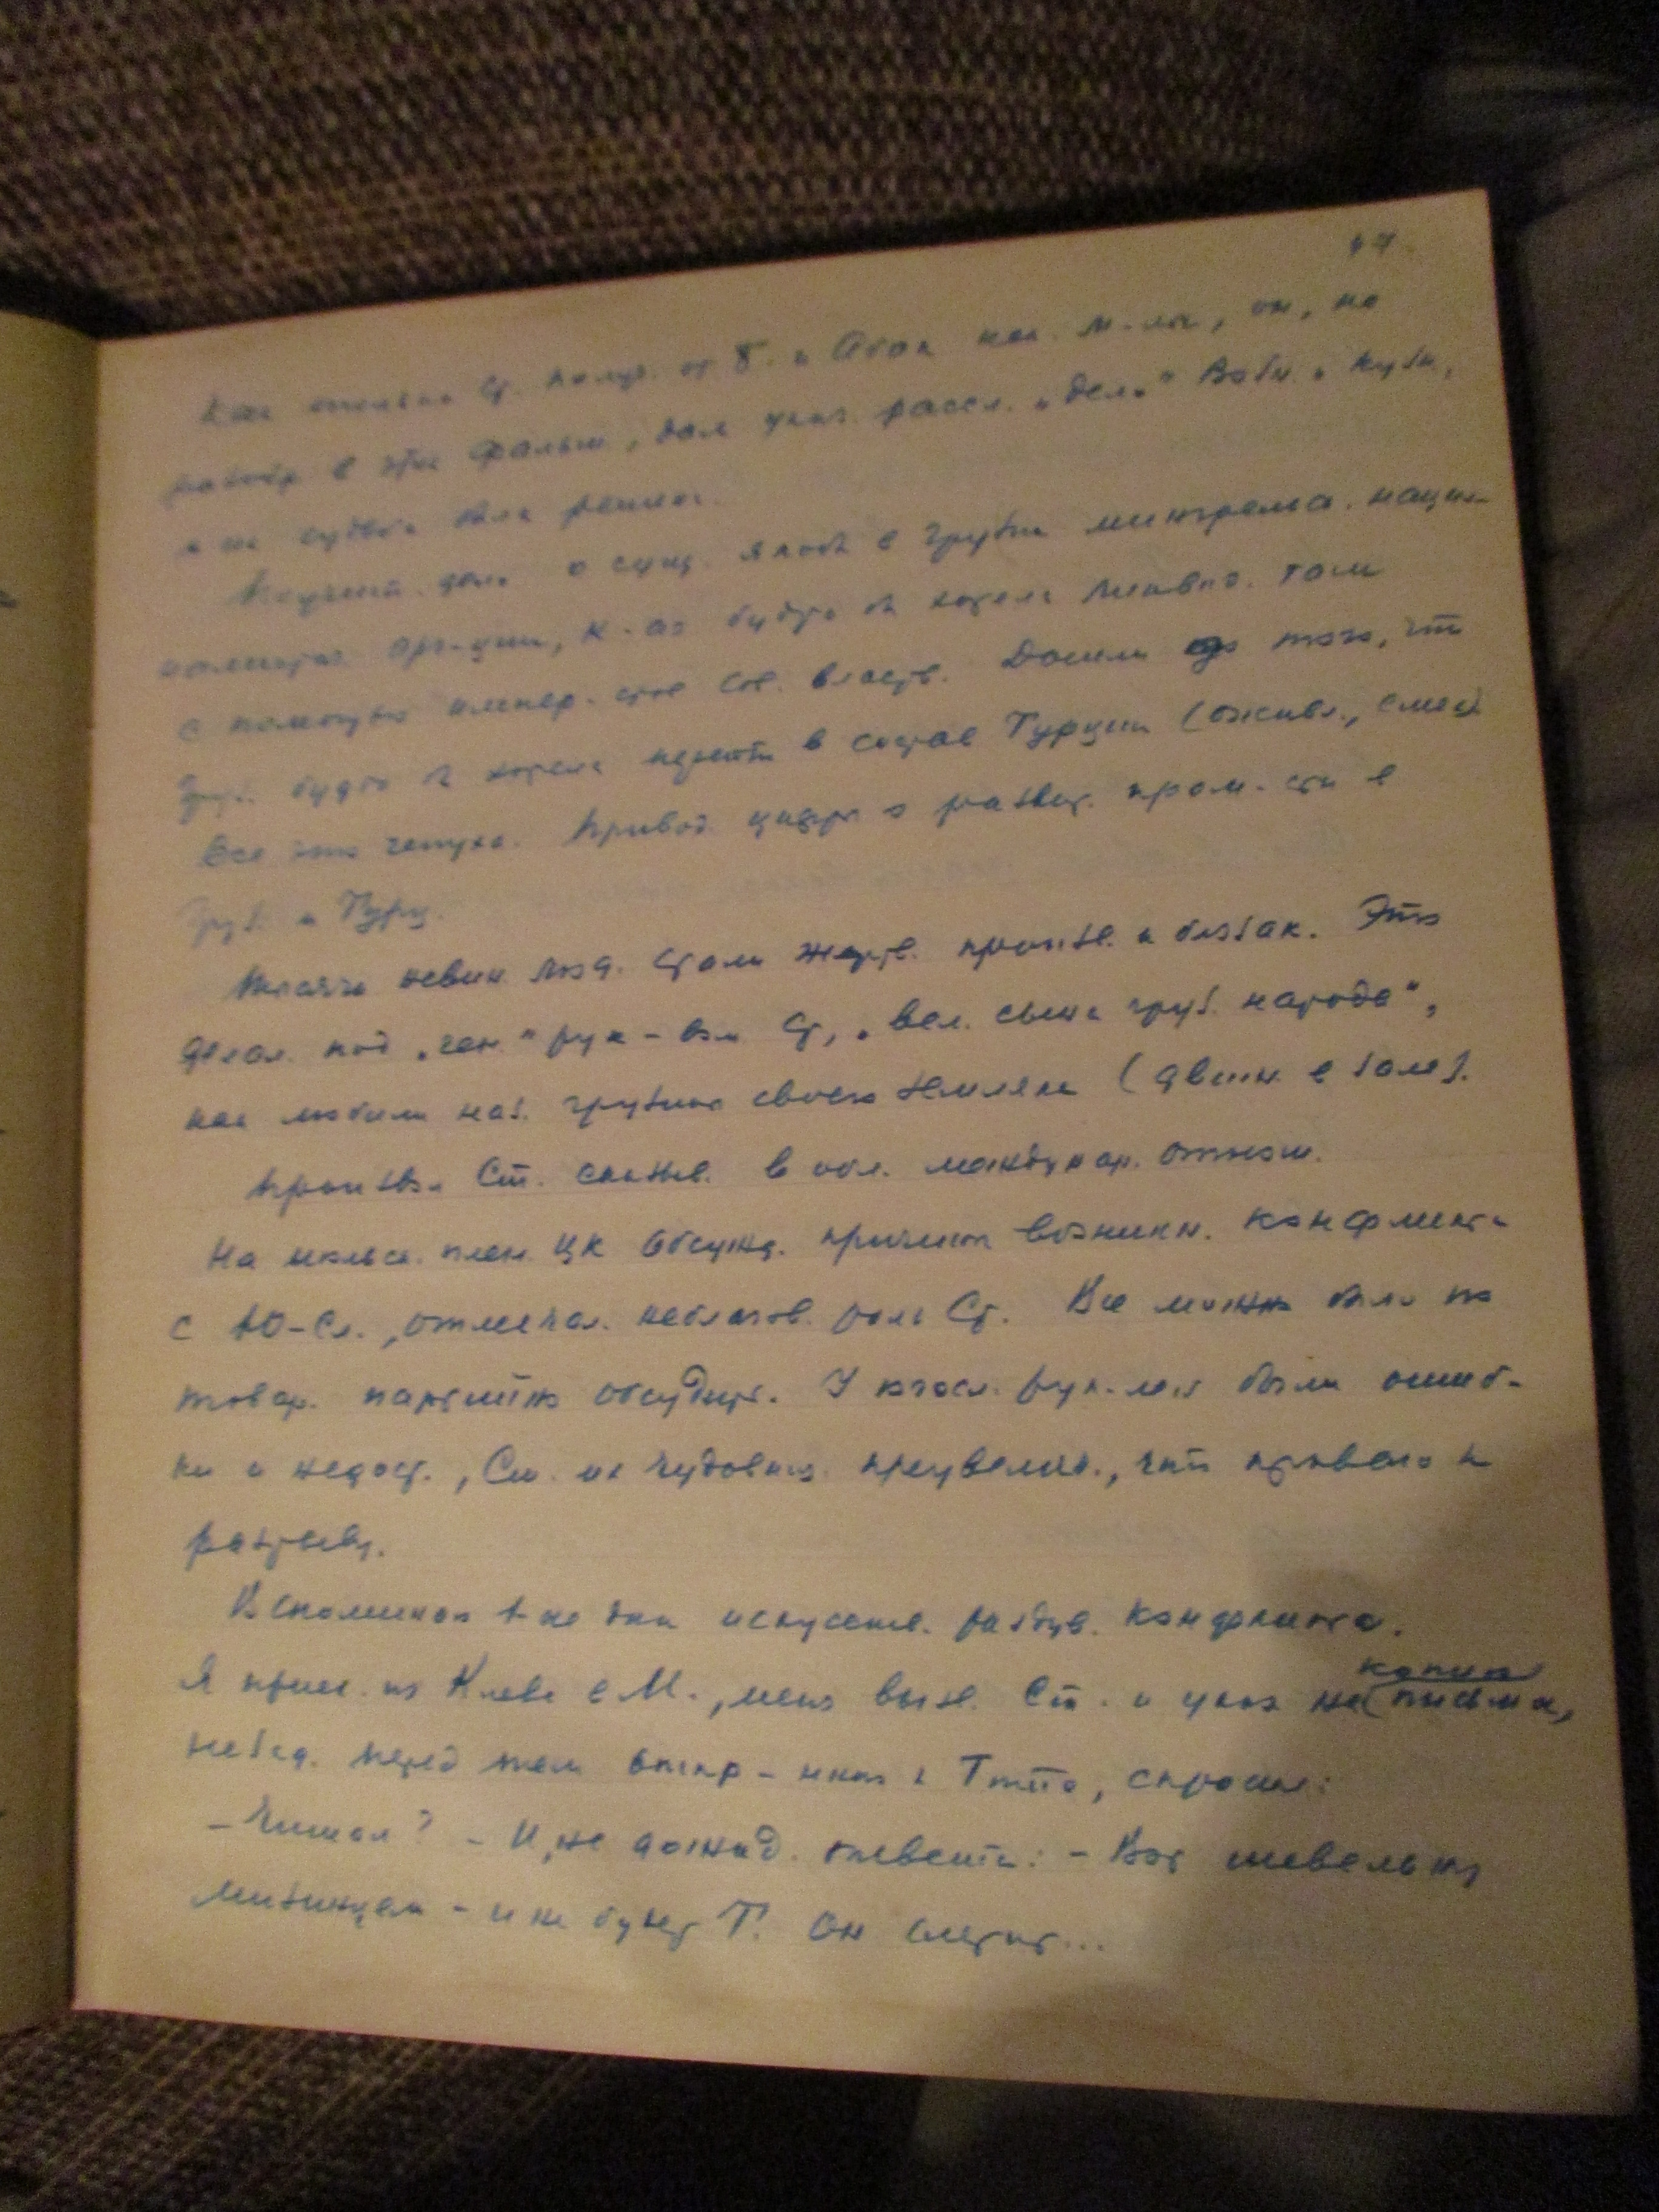 Как только Ст. получ. от Б. и Абак. как. м-лы, он, не
разобр. в этих фальш., дал указ. рассл. „дело" Возн. и Кузн.,
и их судьба была решена.
дело о сущ. якобы в Грузии мингрельс. нацио-
налистич. орг-ции, к-ая будто бы хотела ликвид. там
с помощью импер. гос. Сов. власть. Дошли до того, что
Груз. будто б. хотела перейти в состав Турции (оживл., смех).
Все это чепуха. Привод. цифры о развит. пром-сти в
Груз. и Турц.
Тысячи невин. люд. стали жертв. произв. и беззак. Это
делал. под „ген." рук-вом Ст., „вел. сына груз. народа",
как любили наз. грузины своего земляка (движ. в зале).
Произвол Ст. сказыв. в обл. междунар. отнош.
На июльск. плен. ЦК обсужд. причины возникн. конфликта
с Ю-Сл., отмечал. неблагов. роль Ст. Все можно было по
товар. партийно обсудить. У югосл. рук-лей были ошиб-
ки и недост., Ст. их чудовищ. преувелич., что привело к
разрыву.
Вспоминаю 1-ые дни искусств. раздув. конфликта.
Я приех. из Киева в М., меня вызв. Ст. и указ. на (копию письма,
незад. перед тем отпр-ного к Тито, спросил:
– Читал? – И, не дожид. ответа: – Вот шевельну
мизинцем – и не будет Т. Он слетит...